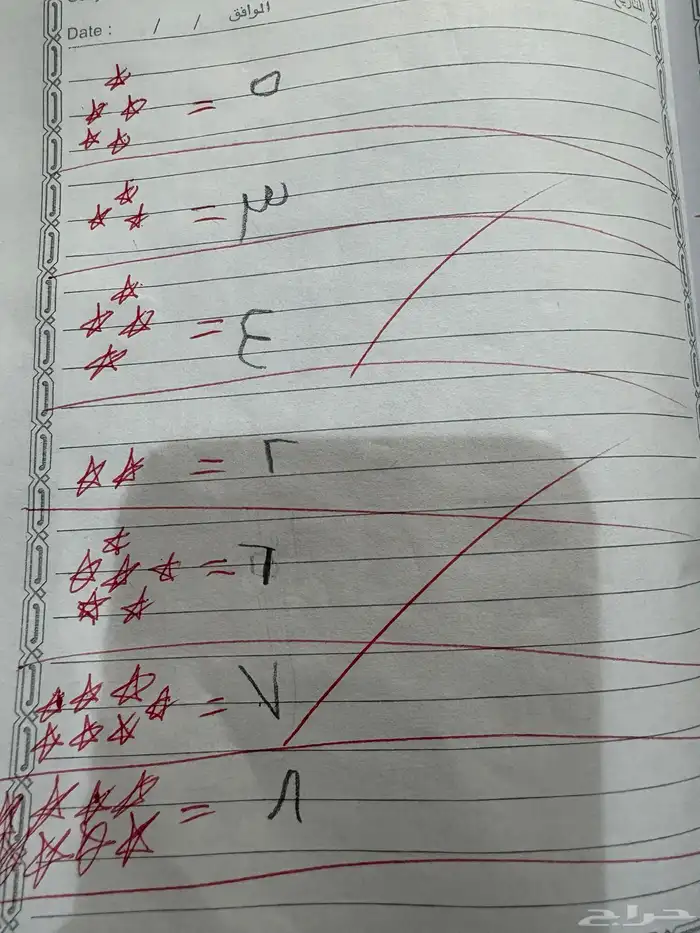 الموافق
التاريخ
Date : / /
= ٥
= ٣
= ٤
= ٢
= ٦
= ٧
= ٨
حراج